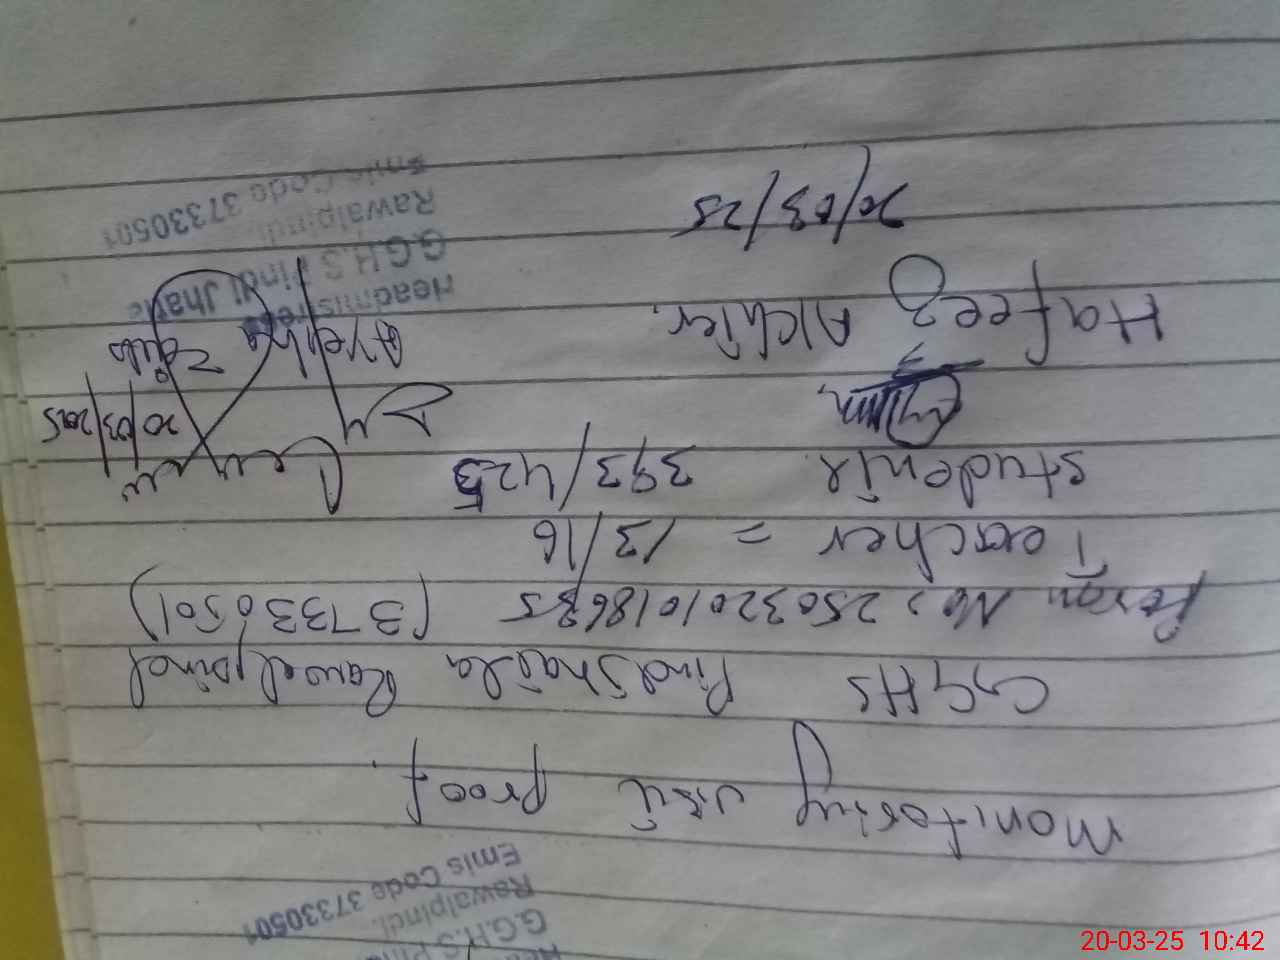 G.G.H.S Pin
Rawalpindi.
Emis Code 37330501
Monitoring visit proof.
GGHS Pind Jhatla Rawalpindi
No: 25032010186 (37330501)
Teacher = 13/16
Students. 393/425
20/03/2025
Hafeez Akhter.
Ayesha
20/03/25
Headmistre
G.G.H.S Pindi Jhatla
Rawalpindi.
Emis Code 37330501
20-03-25 10:42